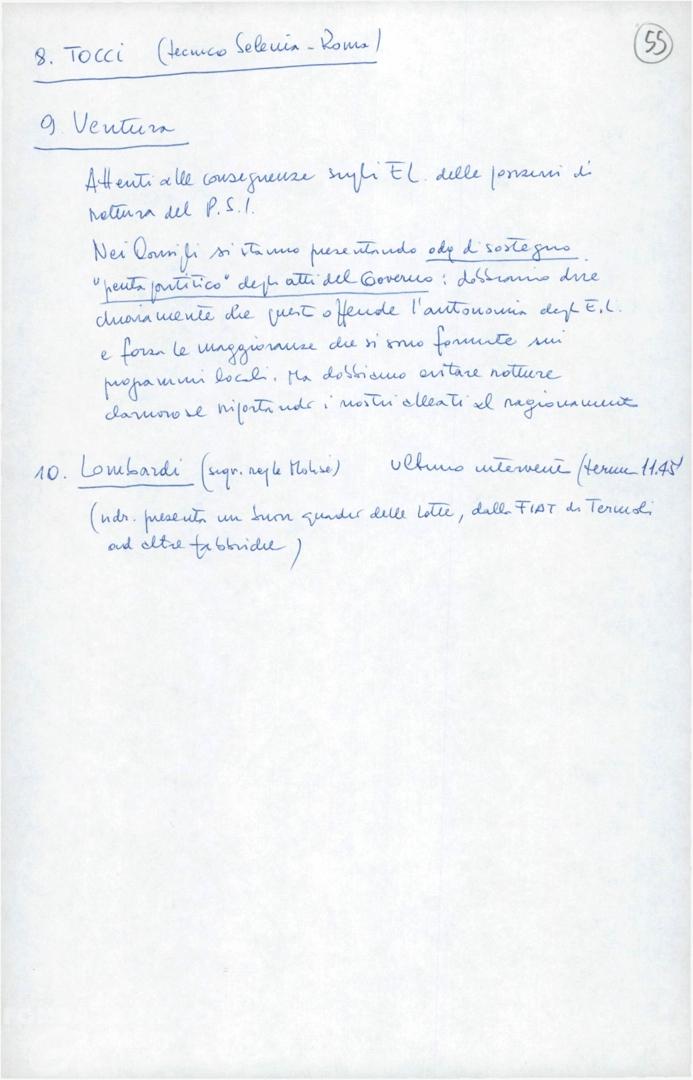 55
8. TOCCI (tecnico Selenia - Roma)
9. Ventura
Attenti alle conseguenze sugli E.L. delle posizioni di
rottura del P.S.I.
Nei Consigli si stanno presentando odg di sostegno
"pentapartitico" degli atti del Governo: dobbiamo dire
chiaramente che questo offende l'autonomia degli E.L.
e forza le maggioranze che si sono formate sui
programmi locali. Ma dobbiamo evitare rotture
clamorose riportando i nostri alleati al ragionamento
10. Lombardi (segr. reg.le Molise) ultimo intervento (termine 11.45)
(ndr. presenta un buon quadro delle lotte, dalla FIAT di Termoli
ad altre fabbriche)